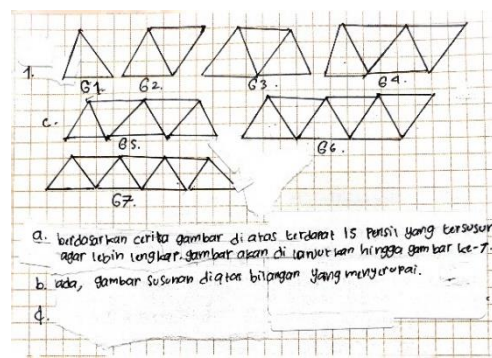 1.
G1. G2. G3. G4.
c.
G5. G6.
G7.
a. berdasarkan cerita gambar di atas terdapat 15 pensil yang tersusun
agar lebih lengkap. gambar akan di lanjutkan hingga gambar ke-7.
b. ada, gambar susunan diatas bilangan yang menyerupai.
d.